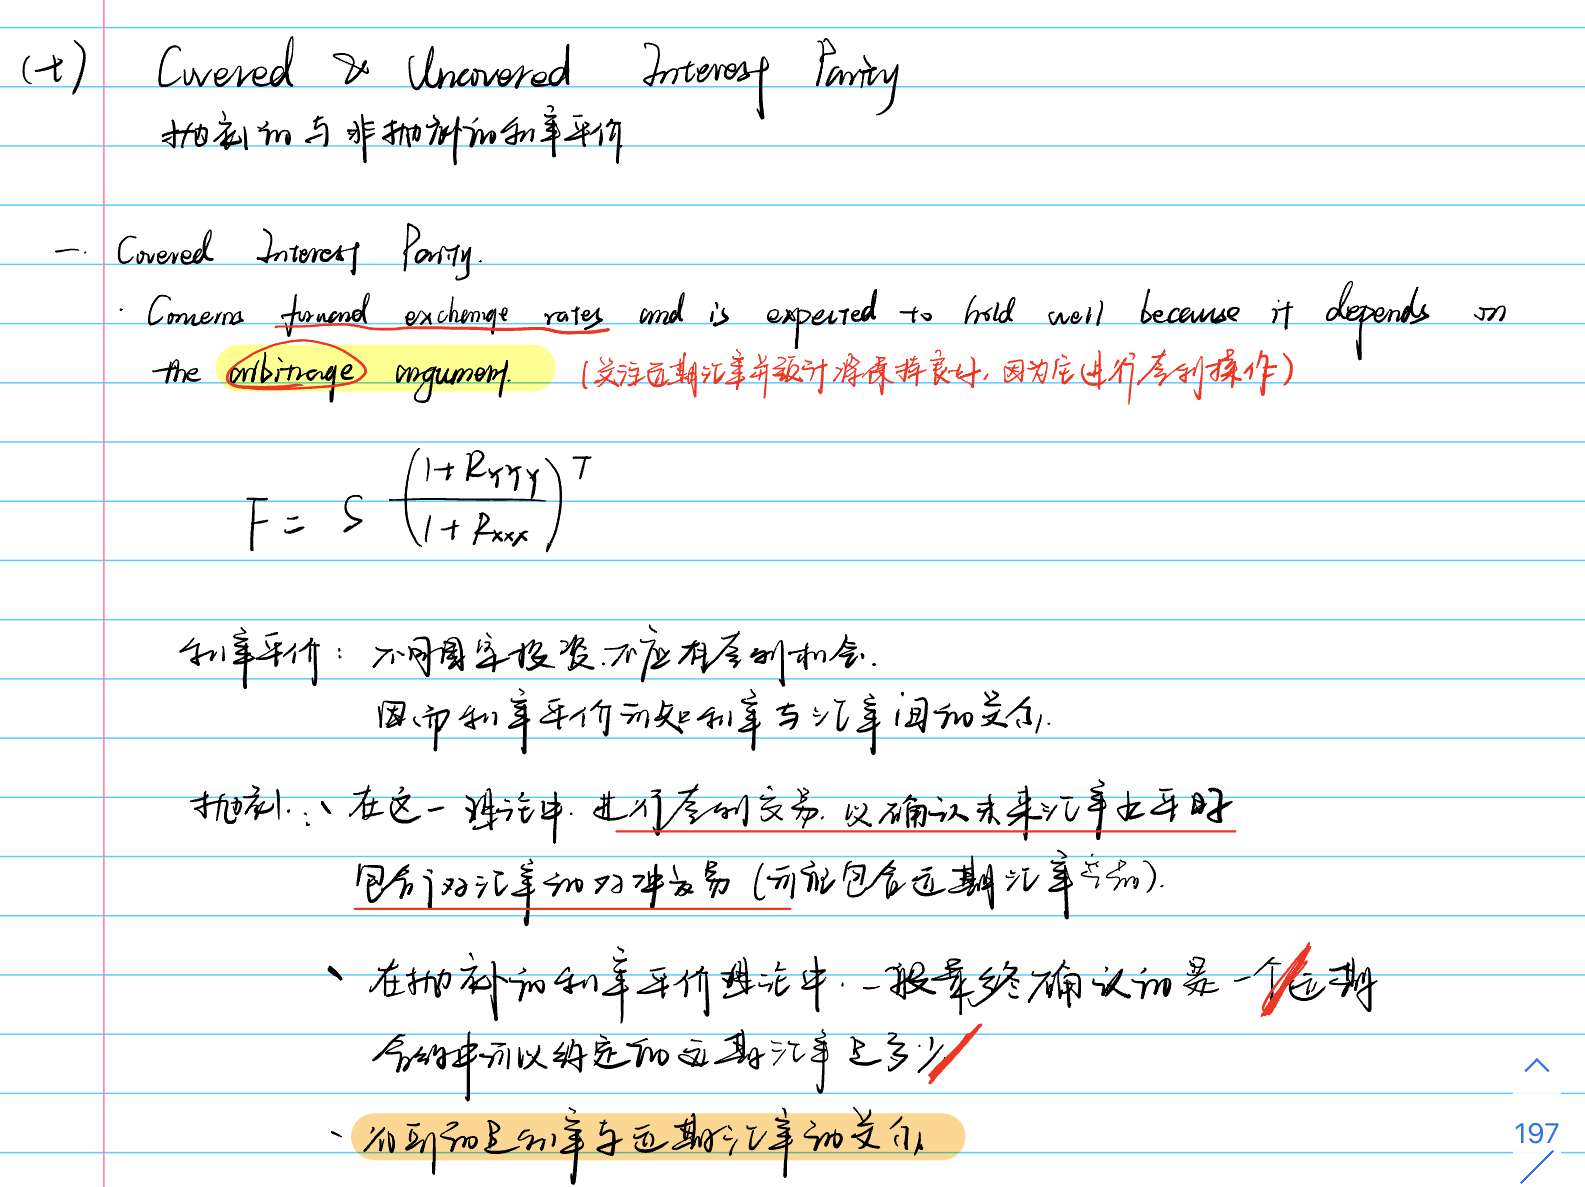 (十) Covered & Uncovered Interest Parity
抛补的与非抛补的利率平价
一. Covered Interest Parity.
· Concerns forward exchange rates and is expected to hold well because it depends on
the arbitrage argument. (关注远期汇率并预计将保持良好, 因为它进行套利操作)
F = S ((1+R_YYY)/(1+R_XXX))^T
利率平价: 不同国家投资, 不应有套利机会.
因而利率平价可知利率与汇率间的关系.
抛补: 、在这一理论中, 进行套利交易, 以确认未来汇率水平时
包含了对汇率的对冲交易 (可能包含远期汇率合约).
、在抛补的利率平价理论中, 一般最终确认的是一个远期
合约中可以约定的远期汇率是多少
、得到的是利率与远期汇率的关系
197